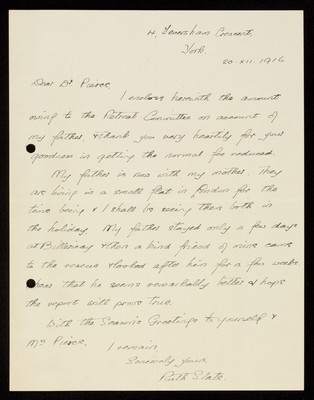 14, Feversham Crescent,
York.
20.XII.1916
Dear Dr Pierce
I enclose herewith the amount
owing to the Retreat Committee on account of
my father & thank you very heartily for your
goodness in getting the normal fee reduced.
My father is now with my mother. They
are living in a small flat in London for the
time being & I shall be seeing them both in
the holiday. My father stayed only a few days
at Billericay & then a kind friend of mine came
to the rescue & looked after him for a few weeks.
hear that he seems remarkably better & hope
the report will prove true.
With the Season's Greetings to yourself &
Mrs Pierce.
I remain,
Sincerely yours
Ruth Slate.